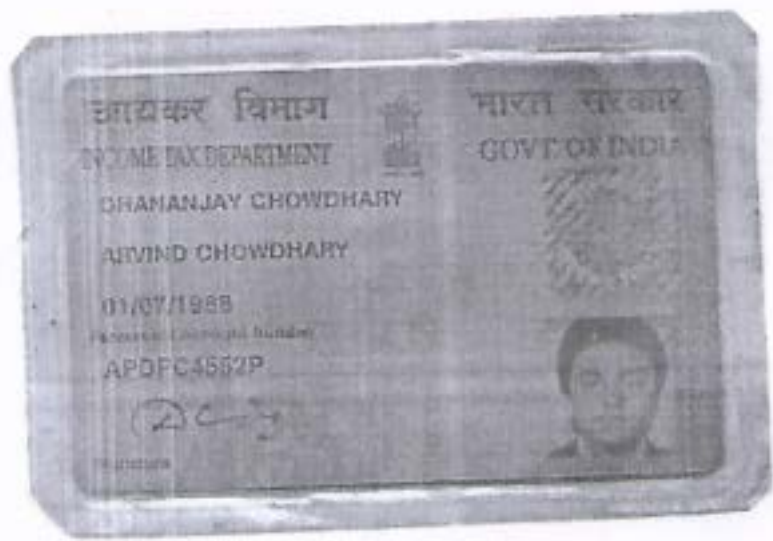 आयकर विभाग
भारत सरकार
INCOME TAX DEPARTMENT
GOVT. OF INDIA
DHANANJAY CHOWDHARY
ARVIND CHOWDHARY
01/07/1988
Permanent Account Number
Signature